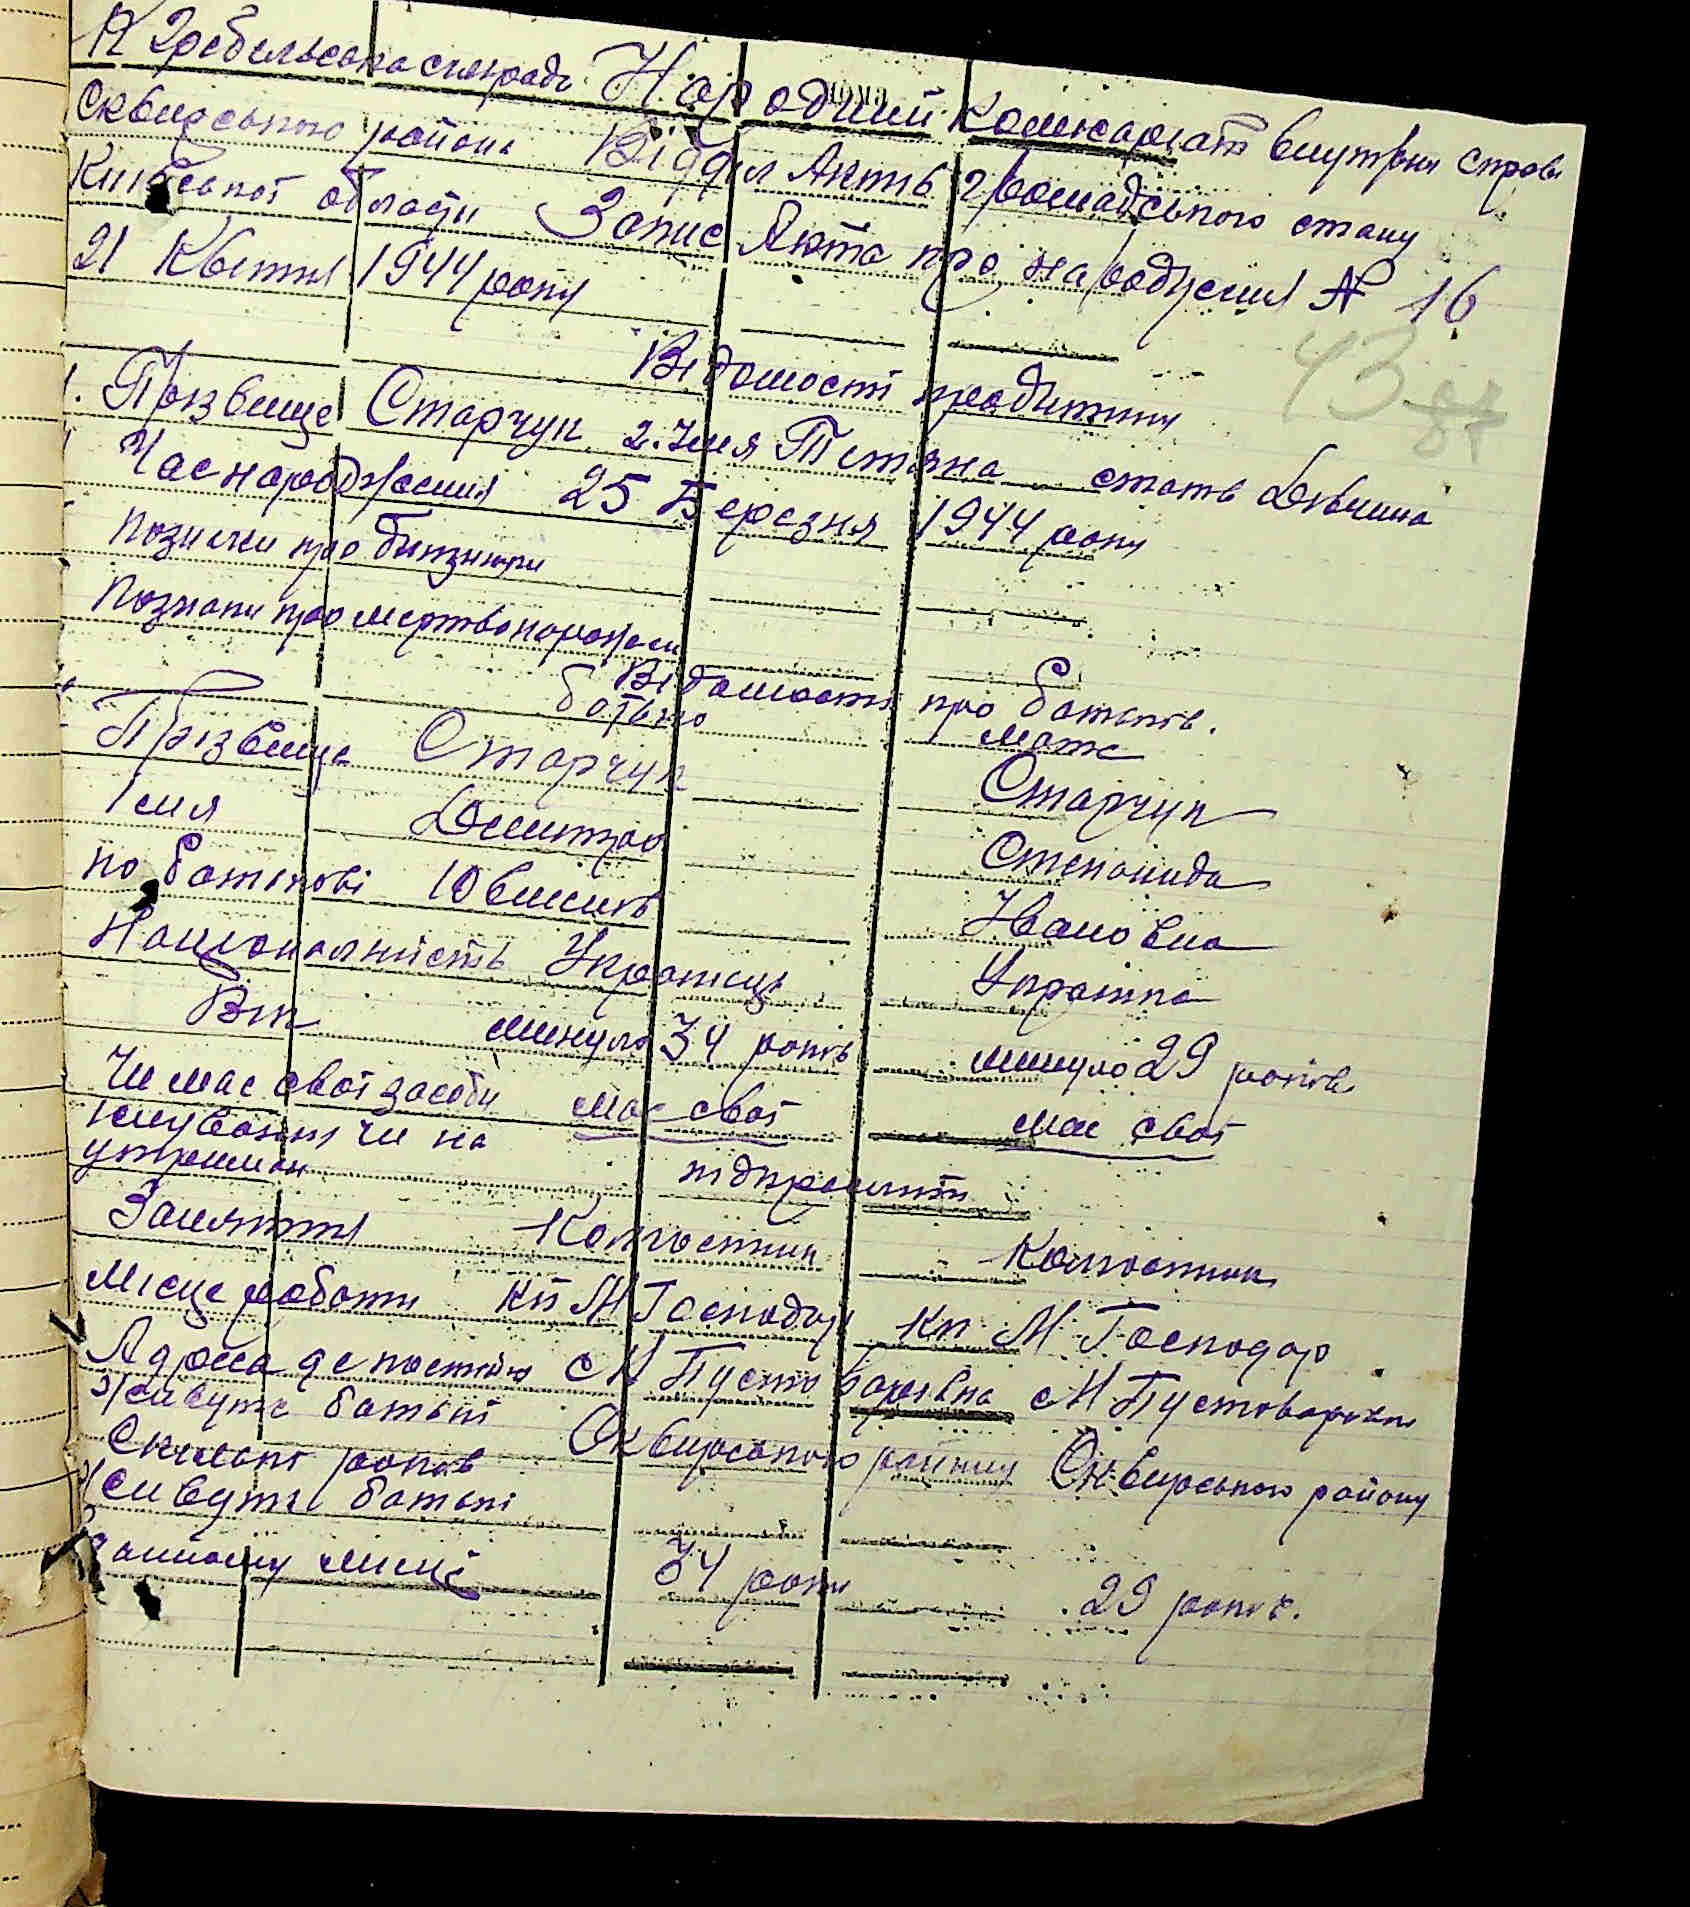 К Гребельська сільрада Народний Комісаріат внутрішн справ
Сквирського району Відділ Актів громадського стану
Київської області Запис Акта про народження № 16
21 Квітня 1944 року
43
Відомості про дитину
1. Прізвище Старчук 2. Імя Тетяна стать Дівчина
Час народження 25 Березня 1944 року
Позначки про близнюки
Познаки про мертвонароджен
Відомости про батьків.
батько мати
Прізвище Старчук Старчук
Імя Дмитро Степанида
по батькові Ювимов Івановна
Національність Українець Українка
Вік минуло 34 років минуло 29 років
Чи має свої засоби має свої має свої
існування чи на
утриман підкреслити
Заняття Колгоспник Колгоспник
Місце роботи Кп М Господар Кп М Господар
Адреса де постійно с М Пустоварівка с М Пустоварівка
живуть батьки Сквирського району Сквирського району
Скільки років
живуть батьки
у данному місці 34 роки 29 років.